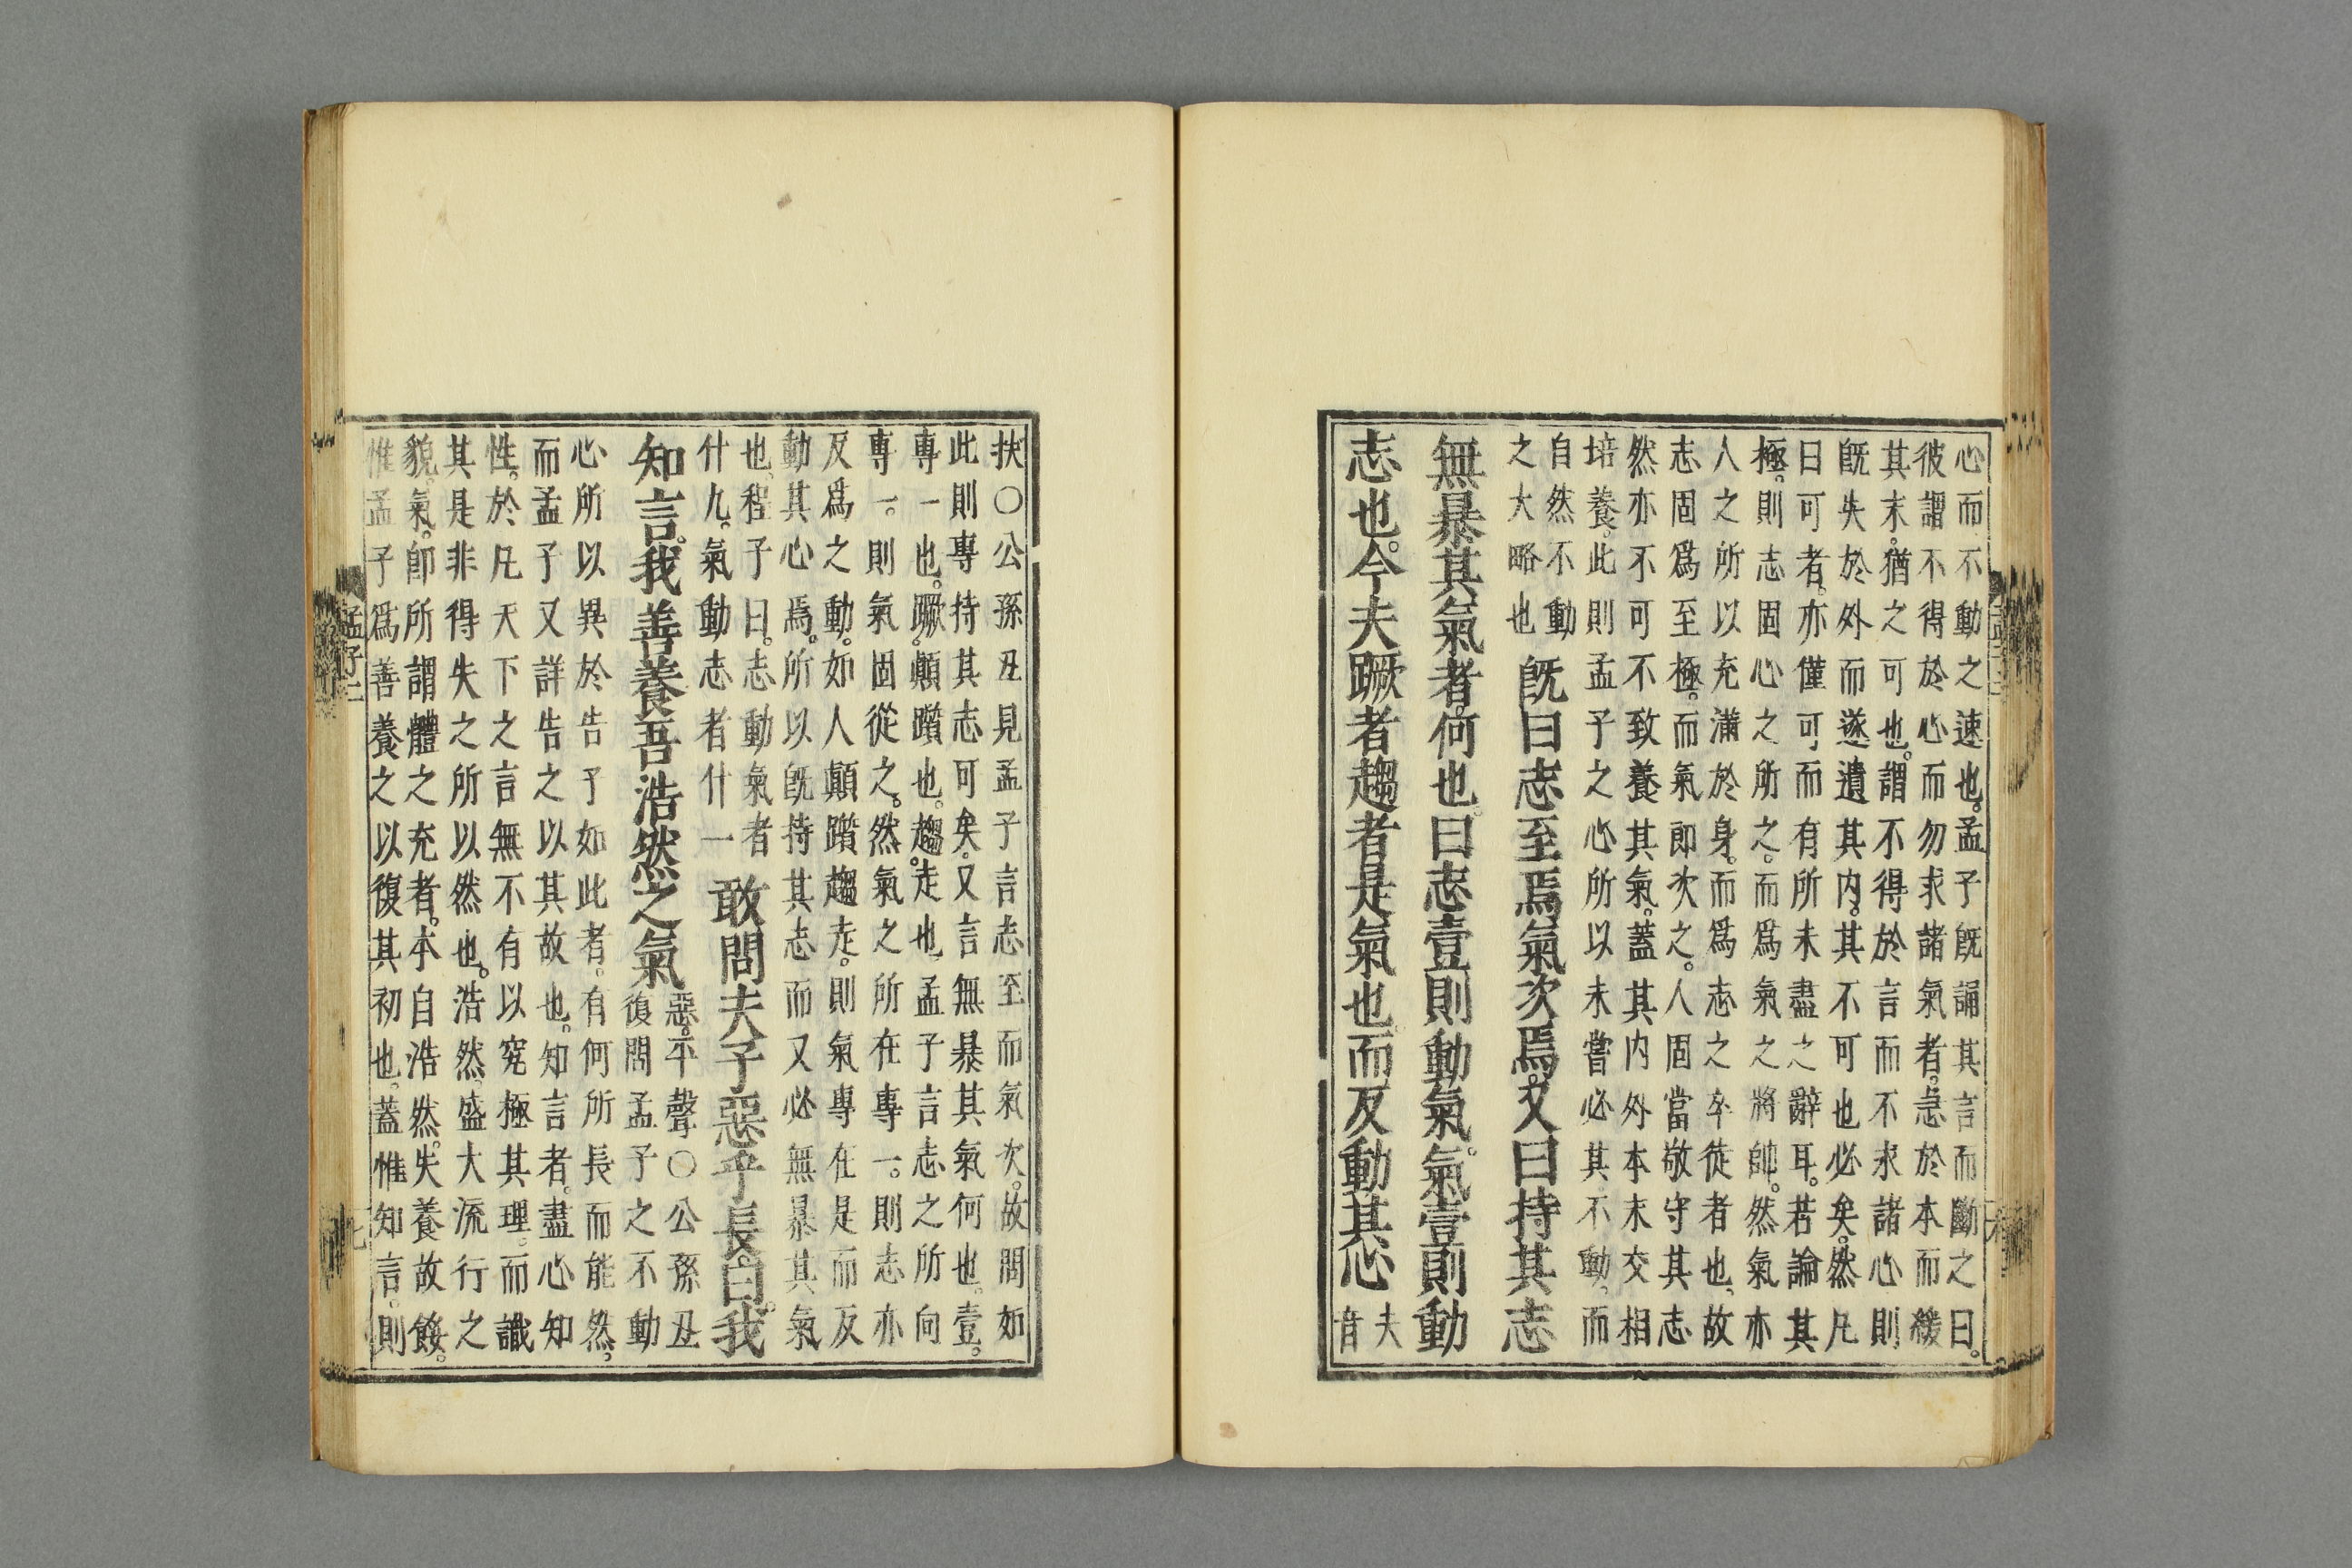 心而不動之速也。孟子既誦其言而斷之曰。
彼謂不得於心而勿求諸氣者。急於本而緩
其末。猶之可也。謂不得於言而不求諸心則
既失於外而遂遺其内。其不可也必矣。然凡
曰可者。亦僅可而有所未盡之辭耳。若論其
極。則志固心之所之。而爲氣之將帥。然氣亦
人之所以充滿於身。而爲志之卒徒者也。故
志固爲至極。而氣即次之。人固當敬守其志
然亦不可不致養其氣。蓋其内外本末交相
培養。此則孟子之心所以未嘗必其不動。而
自然不動
之大略也
既曰志至焉氣次焉。又曰持其志
無暴其氣者。何也。曰志壹則動氣。氣壹則動
志也。今夫蹶者趨者是氣也。而反動其心
夫
音
扶○公孫丑見孟子言志至而氣次。故問如
此則專持其志可矣。又言無暴其氣何也。壹。
專一也。蹶。顚躓也。趨。走也。孟子言志之所向
專一。則氣固從之。然氣之所在專一。則志亦
反爲之動。如人顚躓趨走。則氣專在是而反
動其心焉。所以既持其志而又必無暴其氣
也。程子曰。志動氣者
什九。氣動志者什一
敢問夫子惡乎長。曰。我
知言。我善養吾浩然之氣
惡。平聲○公孫丑
復問孟子之不動
心所以異於告子如此者。有何所長而能然。
而孟子又詳告之以其故也。知言者。盡心知
性。於凡天下之言無不有以究極其理。而識
其是非得失之所以然也。浩然。盛大流行之
貌。氣。即所謂體之充者。本自浩然。失養故餒。
惟孟子爲善養之以復其初也。蓋惟知言。則
孟子二
七